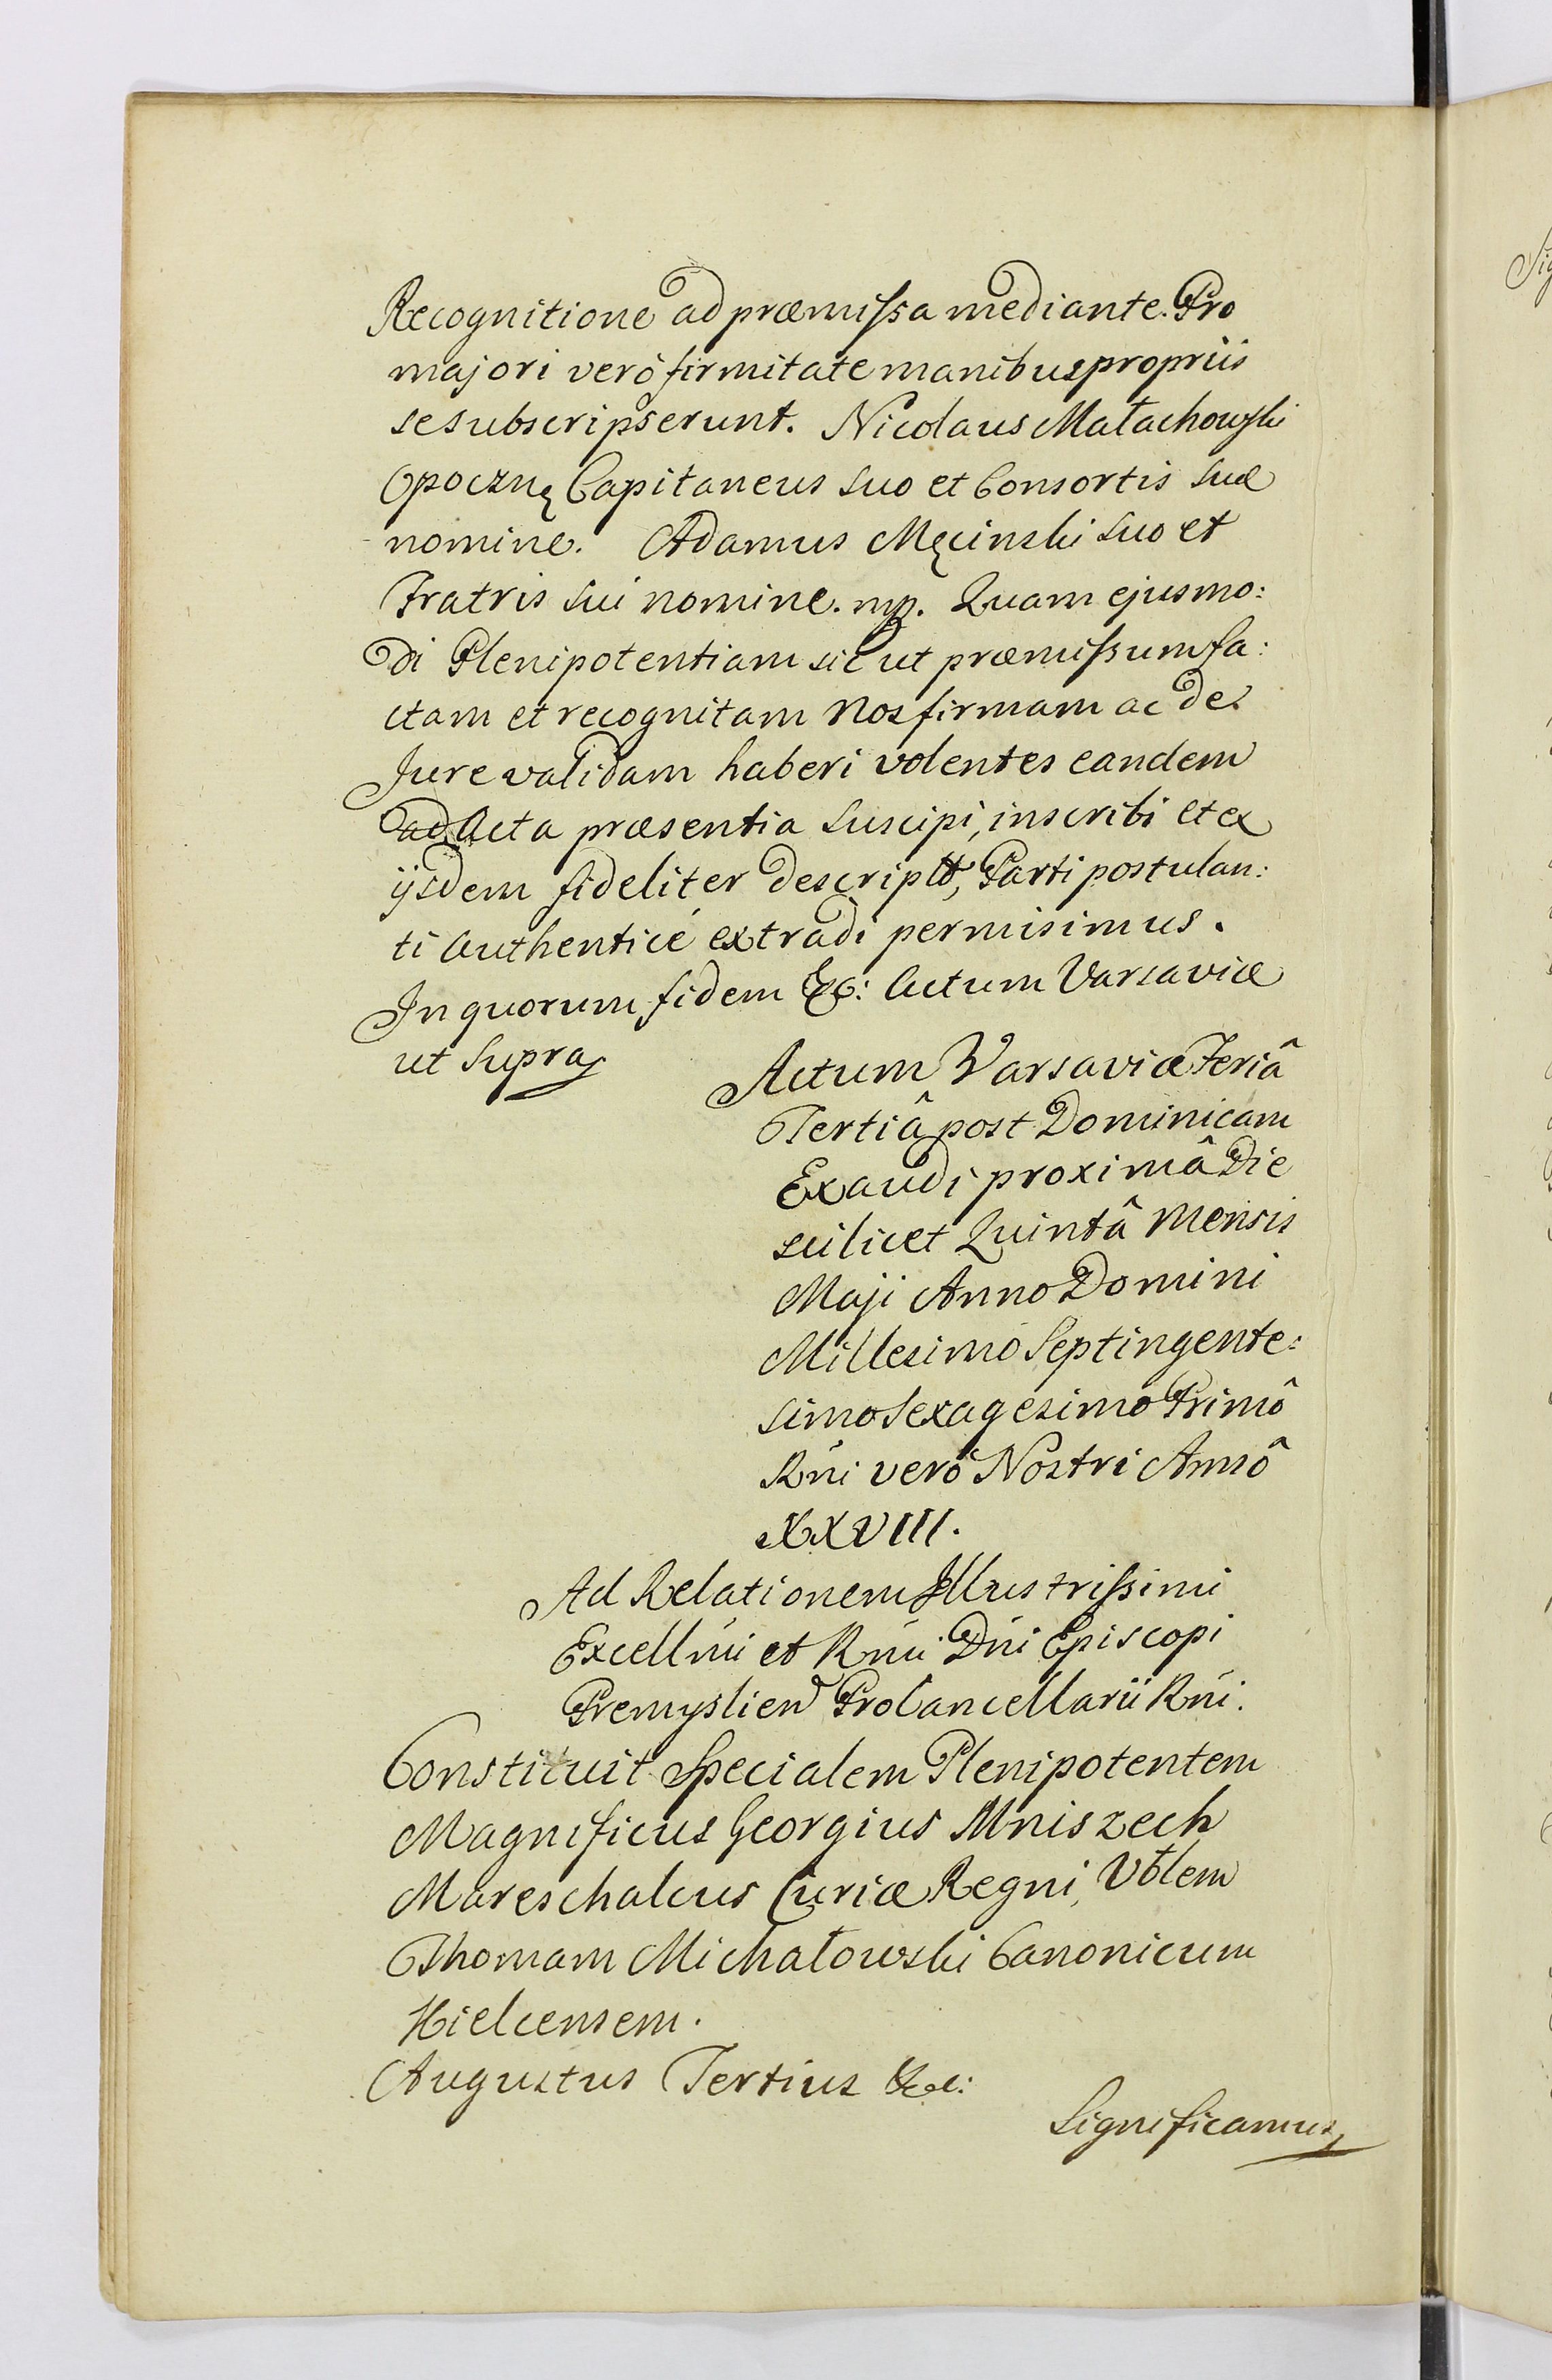 Recognitione ad præmissa mediante. Pro
majori verò firmitate manibus propriis
se subscripserunt. Nicolaus Małachowski
Opocznę Capitaneus suo et Consortis suæ
nomine. Adamus Męcinski suo et
Fratris sui nomine. mp. Quam ejusmo:
di Plenipotentiam sic ut præmissum fa:
ctam et recognitam Nos firmam ac de
Jure validam haberi volentes eandem
ad Acta præsentia suscipi, inscribi et ex
ijsdem fideliter descriptā, Parti postulan:
ti Authenticé extradi permisimus.
In quorum fidem &c: Actum Varsaviæ
ut supra
Actum Varsaviæ Feriâ
Tertiâ post Dominicam
Exaudi proximâ Die
scilicet Quintâ Mensis
Maji Anno Domini
Millesimo Septingente:
simo Sexagesimo Primô
Rni verò Nostri Annô
XXVIII.
Ad Relationem Illustrissimi
Excellmi et Rmi Dni Episcopi
Premyslien ProCancellarii Rni.
Constituit Specialem Plenipotentem
Magnificus Georgius Mniszech
Mareschalcus Curiæ Regni, Vblem
Thomam Michałowski Canonicum
Kielcensem.
Augustus Tertius &c:
Significamus
Sig